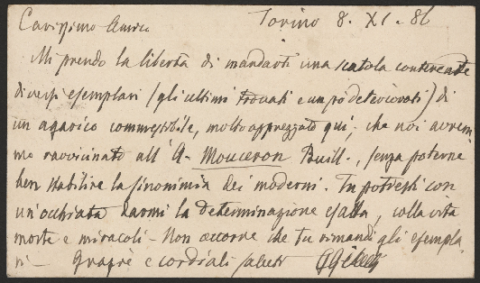 Carissimo Amico Torino 8. XI. 86
Mi prendo la libertà di mandarti una scatola contenente
diversi esemplari (gli ultimi trovati e un pò deteriorati) di
un agarico commestibile, molto apprezzato qui. che noi avrem
mo ravvicinato all' A. Mouceron Bull., senza poterne
ben stabilire la sinonimia dei moderni. Tu potresti con
un'occhiata darmi la determinazione esatta, colla vita
morte e miracoli - Non occorre che tu rimandi gli esempla
ri - Grazie e cordiali saluti